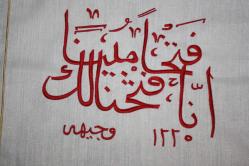 انّا فتحنا لك
فتحاً مبينا
وجيهه